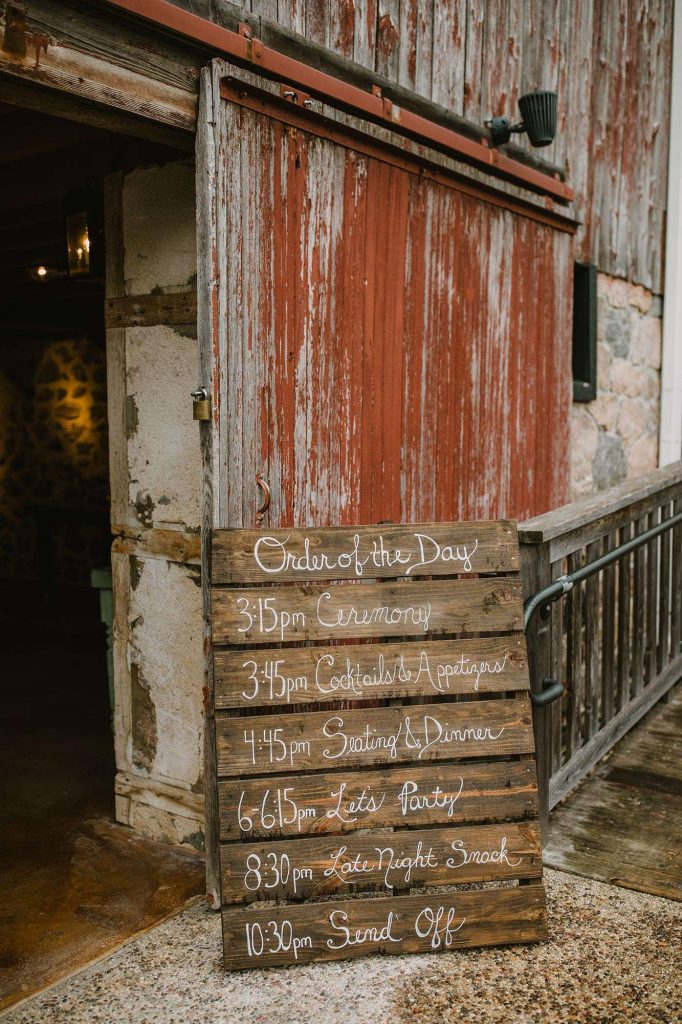 Order of the Day
3:15pm Ceremony
3:45pm Cocktails & Appetizers
4:45pm Seating & Dinner
6-6:15pm Let's Party
8:30pm Late Night Snack
10:30pm Send Off